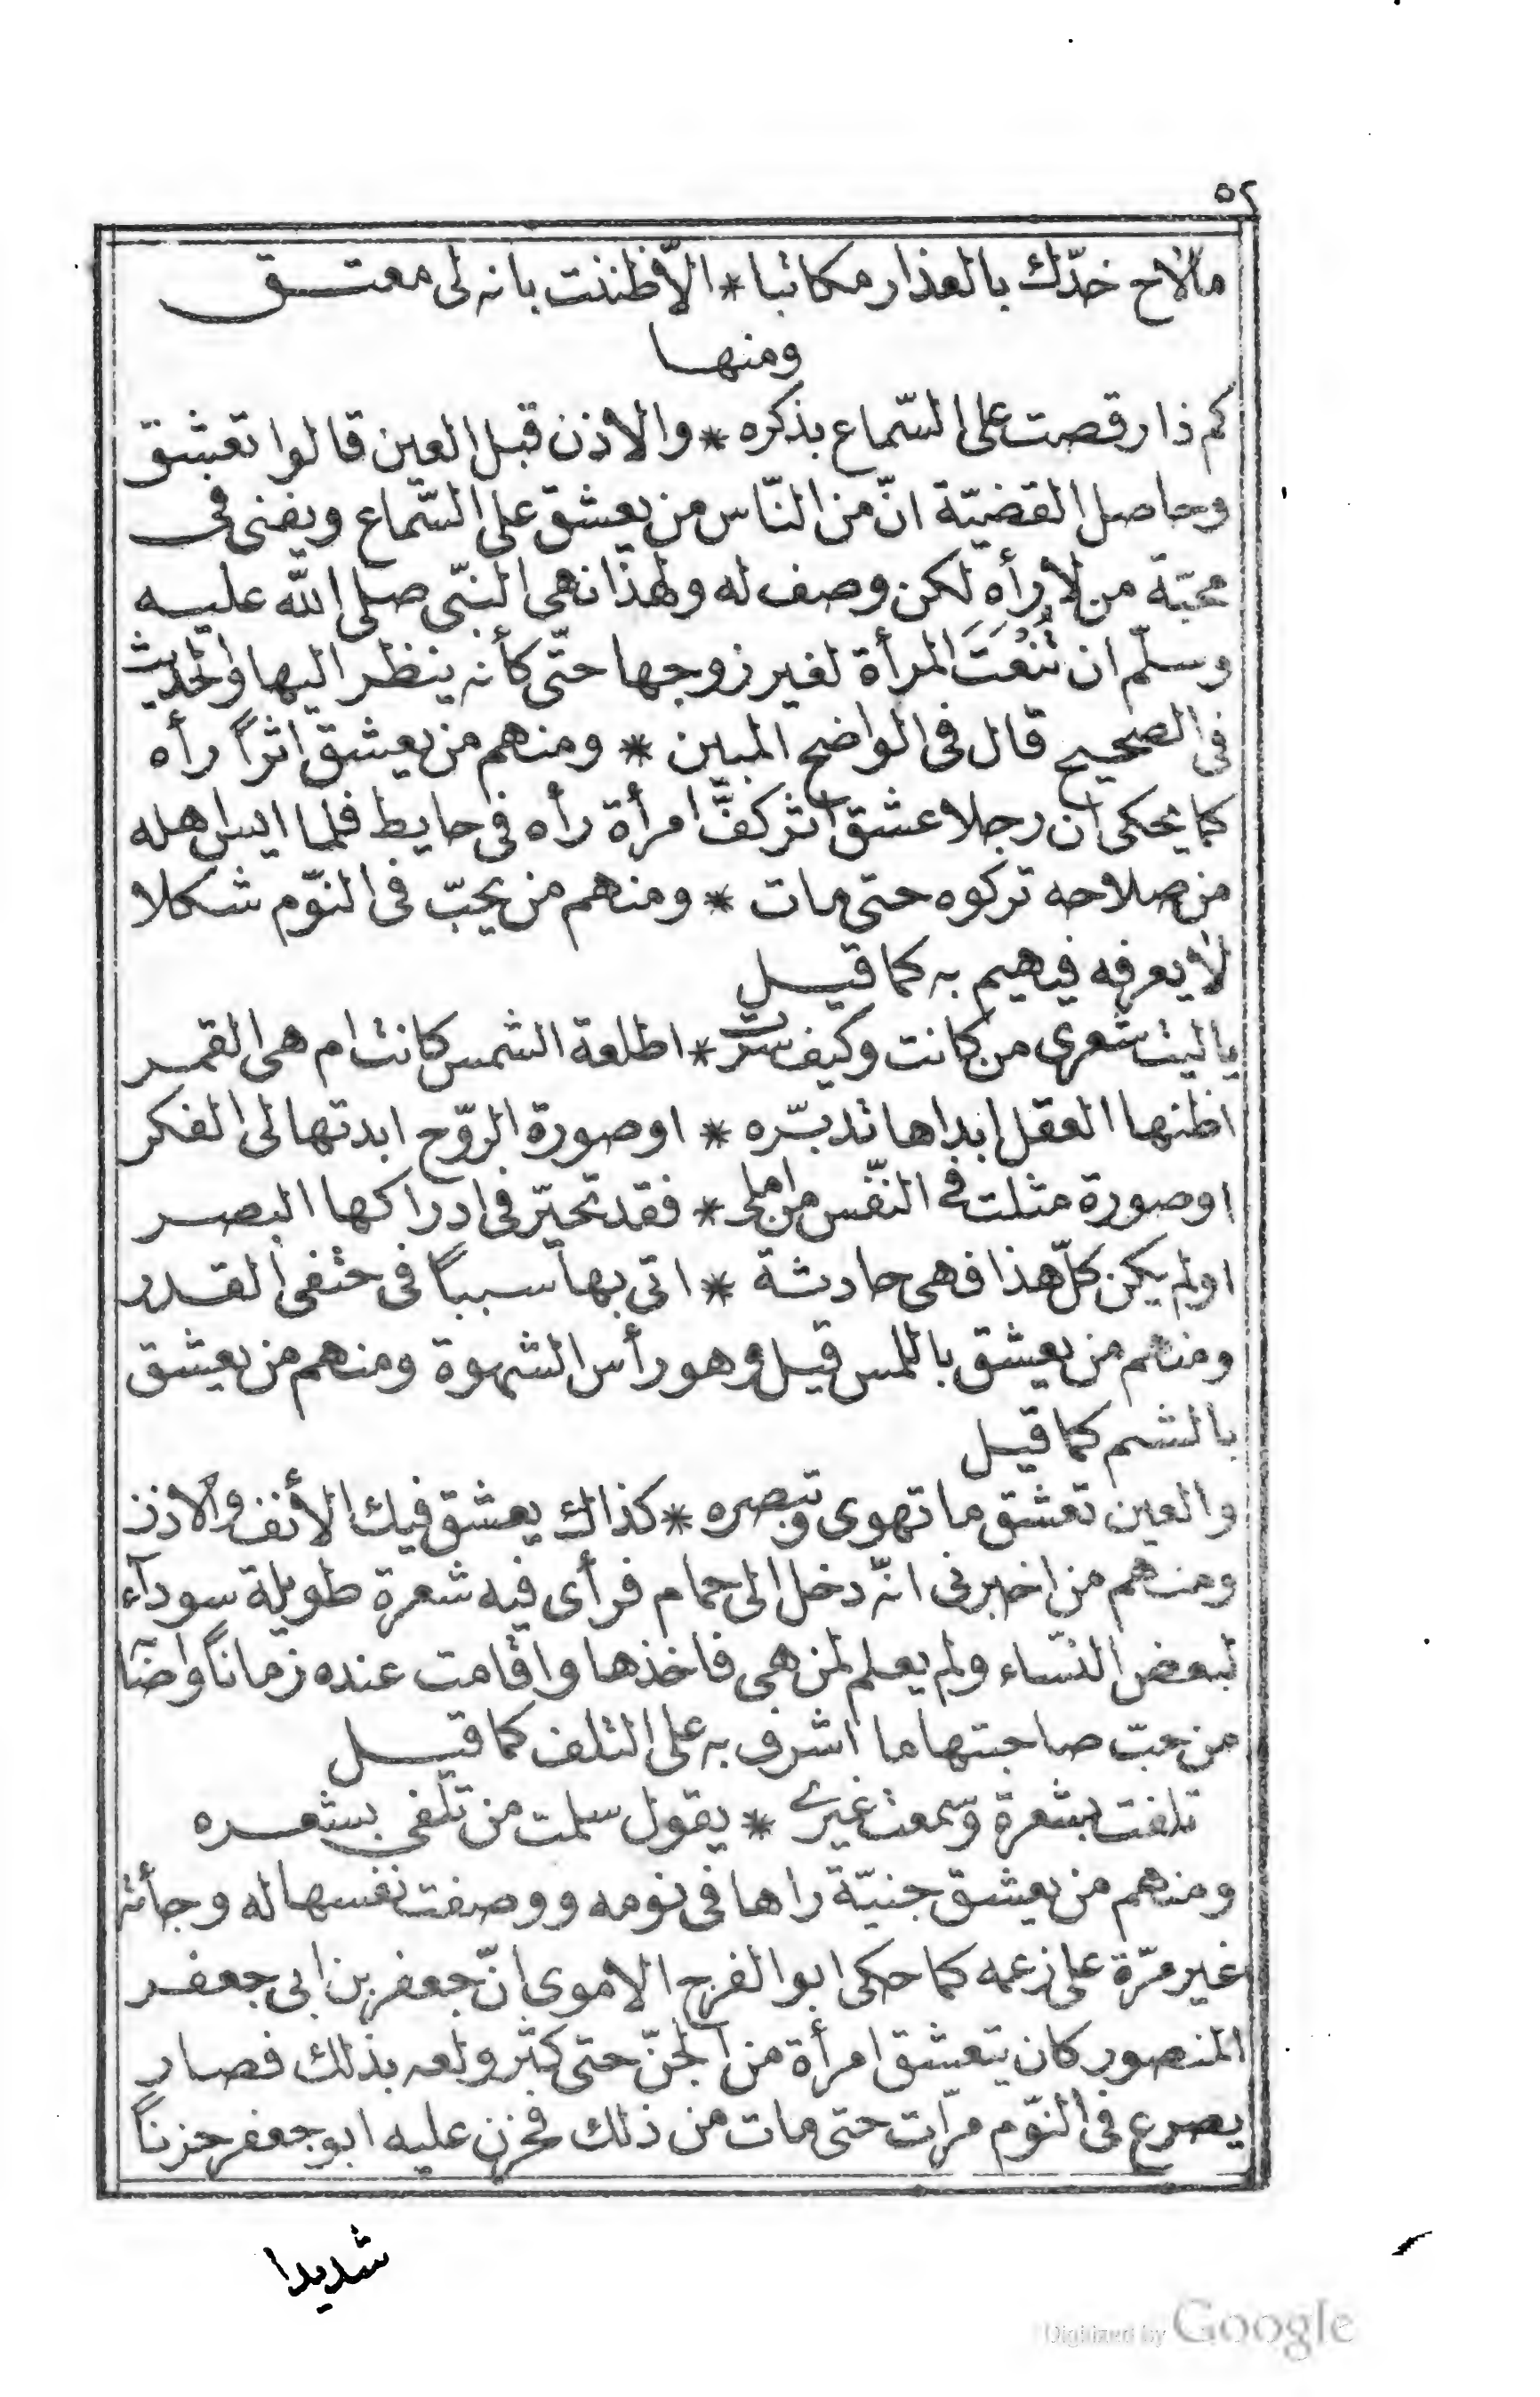 ٥٢
مالاح خدّك بالعذار مكاتبا * الّا ظننت بانه لى معتـــق
ومنهــا
كم ذا رقصت على السّماع بذكره * والاذن قبل العين قالوا تعشق
وحاصل القضيّة انّ من النّاس من يعشق على السّماع ويفنى فى
محبّة من لا رأه لكن وصف له ولهذا نهى النبّى صلى الله عليــه
وسلّم ان تُنْعَتَ المرأة لغير زوجها حتّى كأنه ينظر اليها والحديث
فى الصحيح قال فى الواضح المبين * ومنهم من يعشق اثراً رأه
كما يحكى ان رجلا عشق اثر كفّ امرأة رأه فى حايط فلما ايس اهله
من صلاحه تركوه حتى مات * ومنهم من يحبّ فى النّوم شكلا
لا يعرفه فيهيم به كما قيــل
يا ليت شعرى من كانت وكيف سرت * اطلعة الشمس كانت ام هى القمــر
اظنها العقل ابداها تدبّره * او صورة الرّوح ابدتها لى الفكر
او صورة مثلت فى النّفس من املى * فقد تحيّر فى ادراكها البصــر
او لم يكن كلّ هذا فهى حادثة * اتى بها سبباً فى حتفى القــدر
ومنهم من يعشق باللمس قيل وهو رأس الشهوة ومنهم من يعشق
بالشم كما قيــل
والعين تعشق ما تهوى وتبصره * كذاك يعشق فيك الأنف والاذن
ومنهم من اخبرنى انّه دخل الى حمام فرأى فيه شعرة طويلة سودآء
لبعض النّساء ولم يعلم لمن هى فاخذها واقامت عنده زماناً واضنآ
من حبّ صاحبتها ما اشرف به على التلف كما قيـــل
تلفت بشعرة وسمعت غيرى * يقول سلمت من تلفى بشعــره
ومنهم من يعشق جنيّة راها فى نومه ووصفت نفسها له وجأته
غير مرّة على زعمه كما حكى ابو الفرج الاموى انّ جعفر بن ابى جعفــر
المنصور كان يتعشق امرأة من الجنّ حتى كثر ولعه بذلك فصار
يصرع فى النّوم مرّات حتى مات من ذلك فحزن عليه ابو جعفر حزناً
شديدا
Digitized by Google